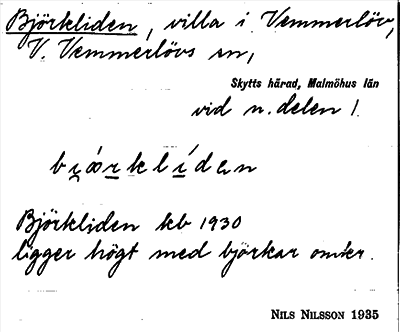 Björkliden, villa i Vemmerlöv,
V. Vemmerlövs sn,
Skytts härad, Malmöhus län
vid n. delen 1.
Björkliden kb 1930
ligger högt med björkar omkr.
NILS NILSSON 1935